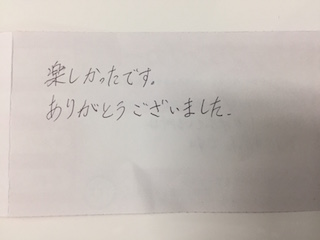 楽しかったです。
ありがとうございました.